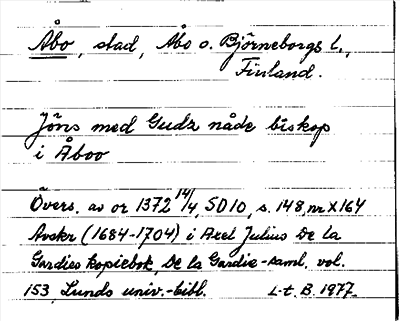 Åbo, stad, Åbo o. Björneborgs l.,
Finland.
Jöns med Gudz nåde biskop
i Åboo
Övers. av or 1372 14/4, SD10, s. 148, nr X164
Avskr (1684-1704) i Axel Julius De la
Gardies kopiebok, De la Gardie-saml. vol.
153, Lunds univ.-bibl. L-t. B. 1977